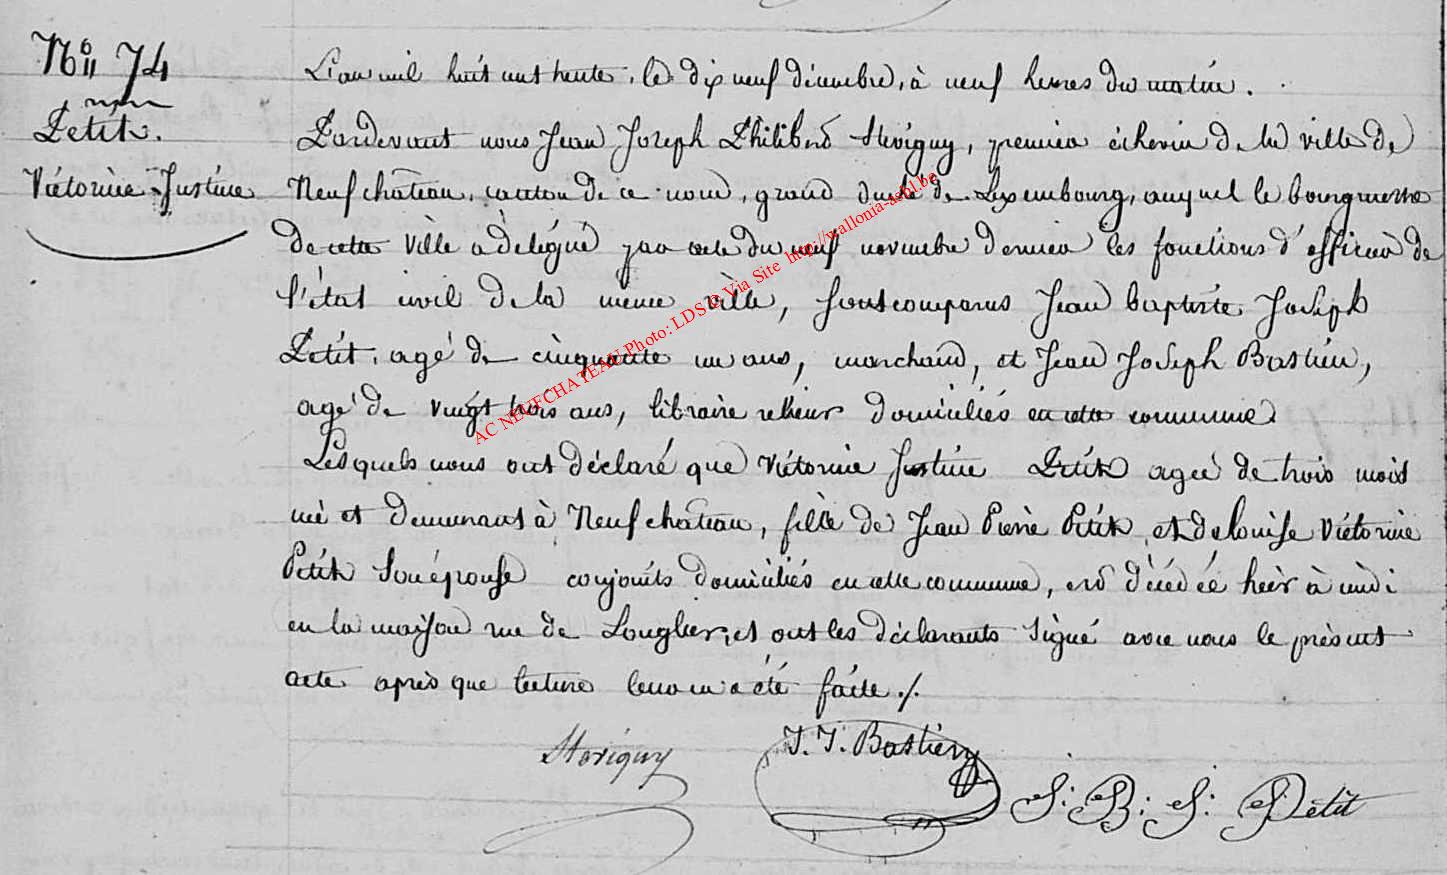 N° 74
Petit.
Victorine Justine
L'an mil huit cent trente, le dix neuf décembre, à neuf heures du matin.
Pardevant nous Jean Joseph Philibert, premier échevin de la ville de
Neufchâteau, canton de ce nom, grand duché de Luxembourg, auquel le bourgmestre
de cette ville a délégué par acte du neuf novembre dernier les fonctions d'officier de
l'état civil de la même ville, sont comparus Jean baptiste Joseph
Petit, agé de cinquante un ans, marchand, et Jean Joseph Bastien,
agé de vingt trois ans, libraire relieur domiciliés en cette commune
Lesquels nous ont déclaré que Victorine Justine Petit agée de trois mois
née et demeurant à Neufchâteau, fille de Jean Pierre Petit et de louise Victorine
Petit son épouse conjoints domiciliés en cette commune, est décédée hier à midi
en la maison rue de Longlier, et ont les déclarants signé avec nous le présent
acte après que lecture leur en a été faite ./.
J. J. Bastien
J: B: J: Petit
AC NEUFCHATEAU Photo: LDS © Via Site http://wallonia-asbl.be